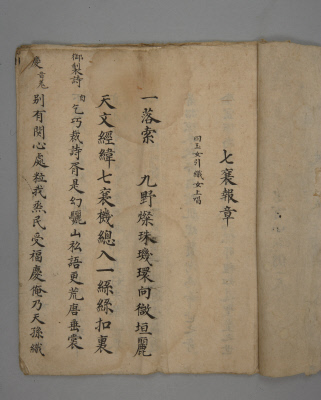 七襄報章
四玉女引織女上唱
一落索 九野燦珠璣環向微垣麗
天文經緯七襄機總入一絲絲扣裏
御製詩 白 乞巧裁詩胥是幻驪山私語更荒唐垂裳
別有關心處粒我烝民受福慶俺乃天孫織